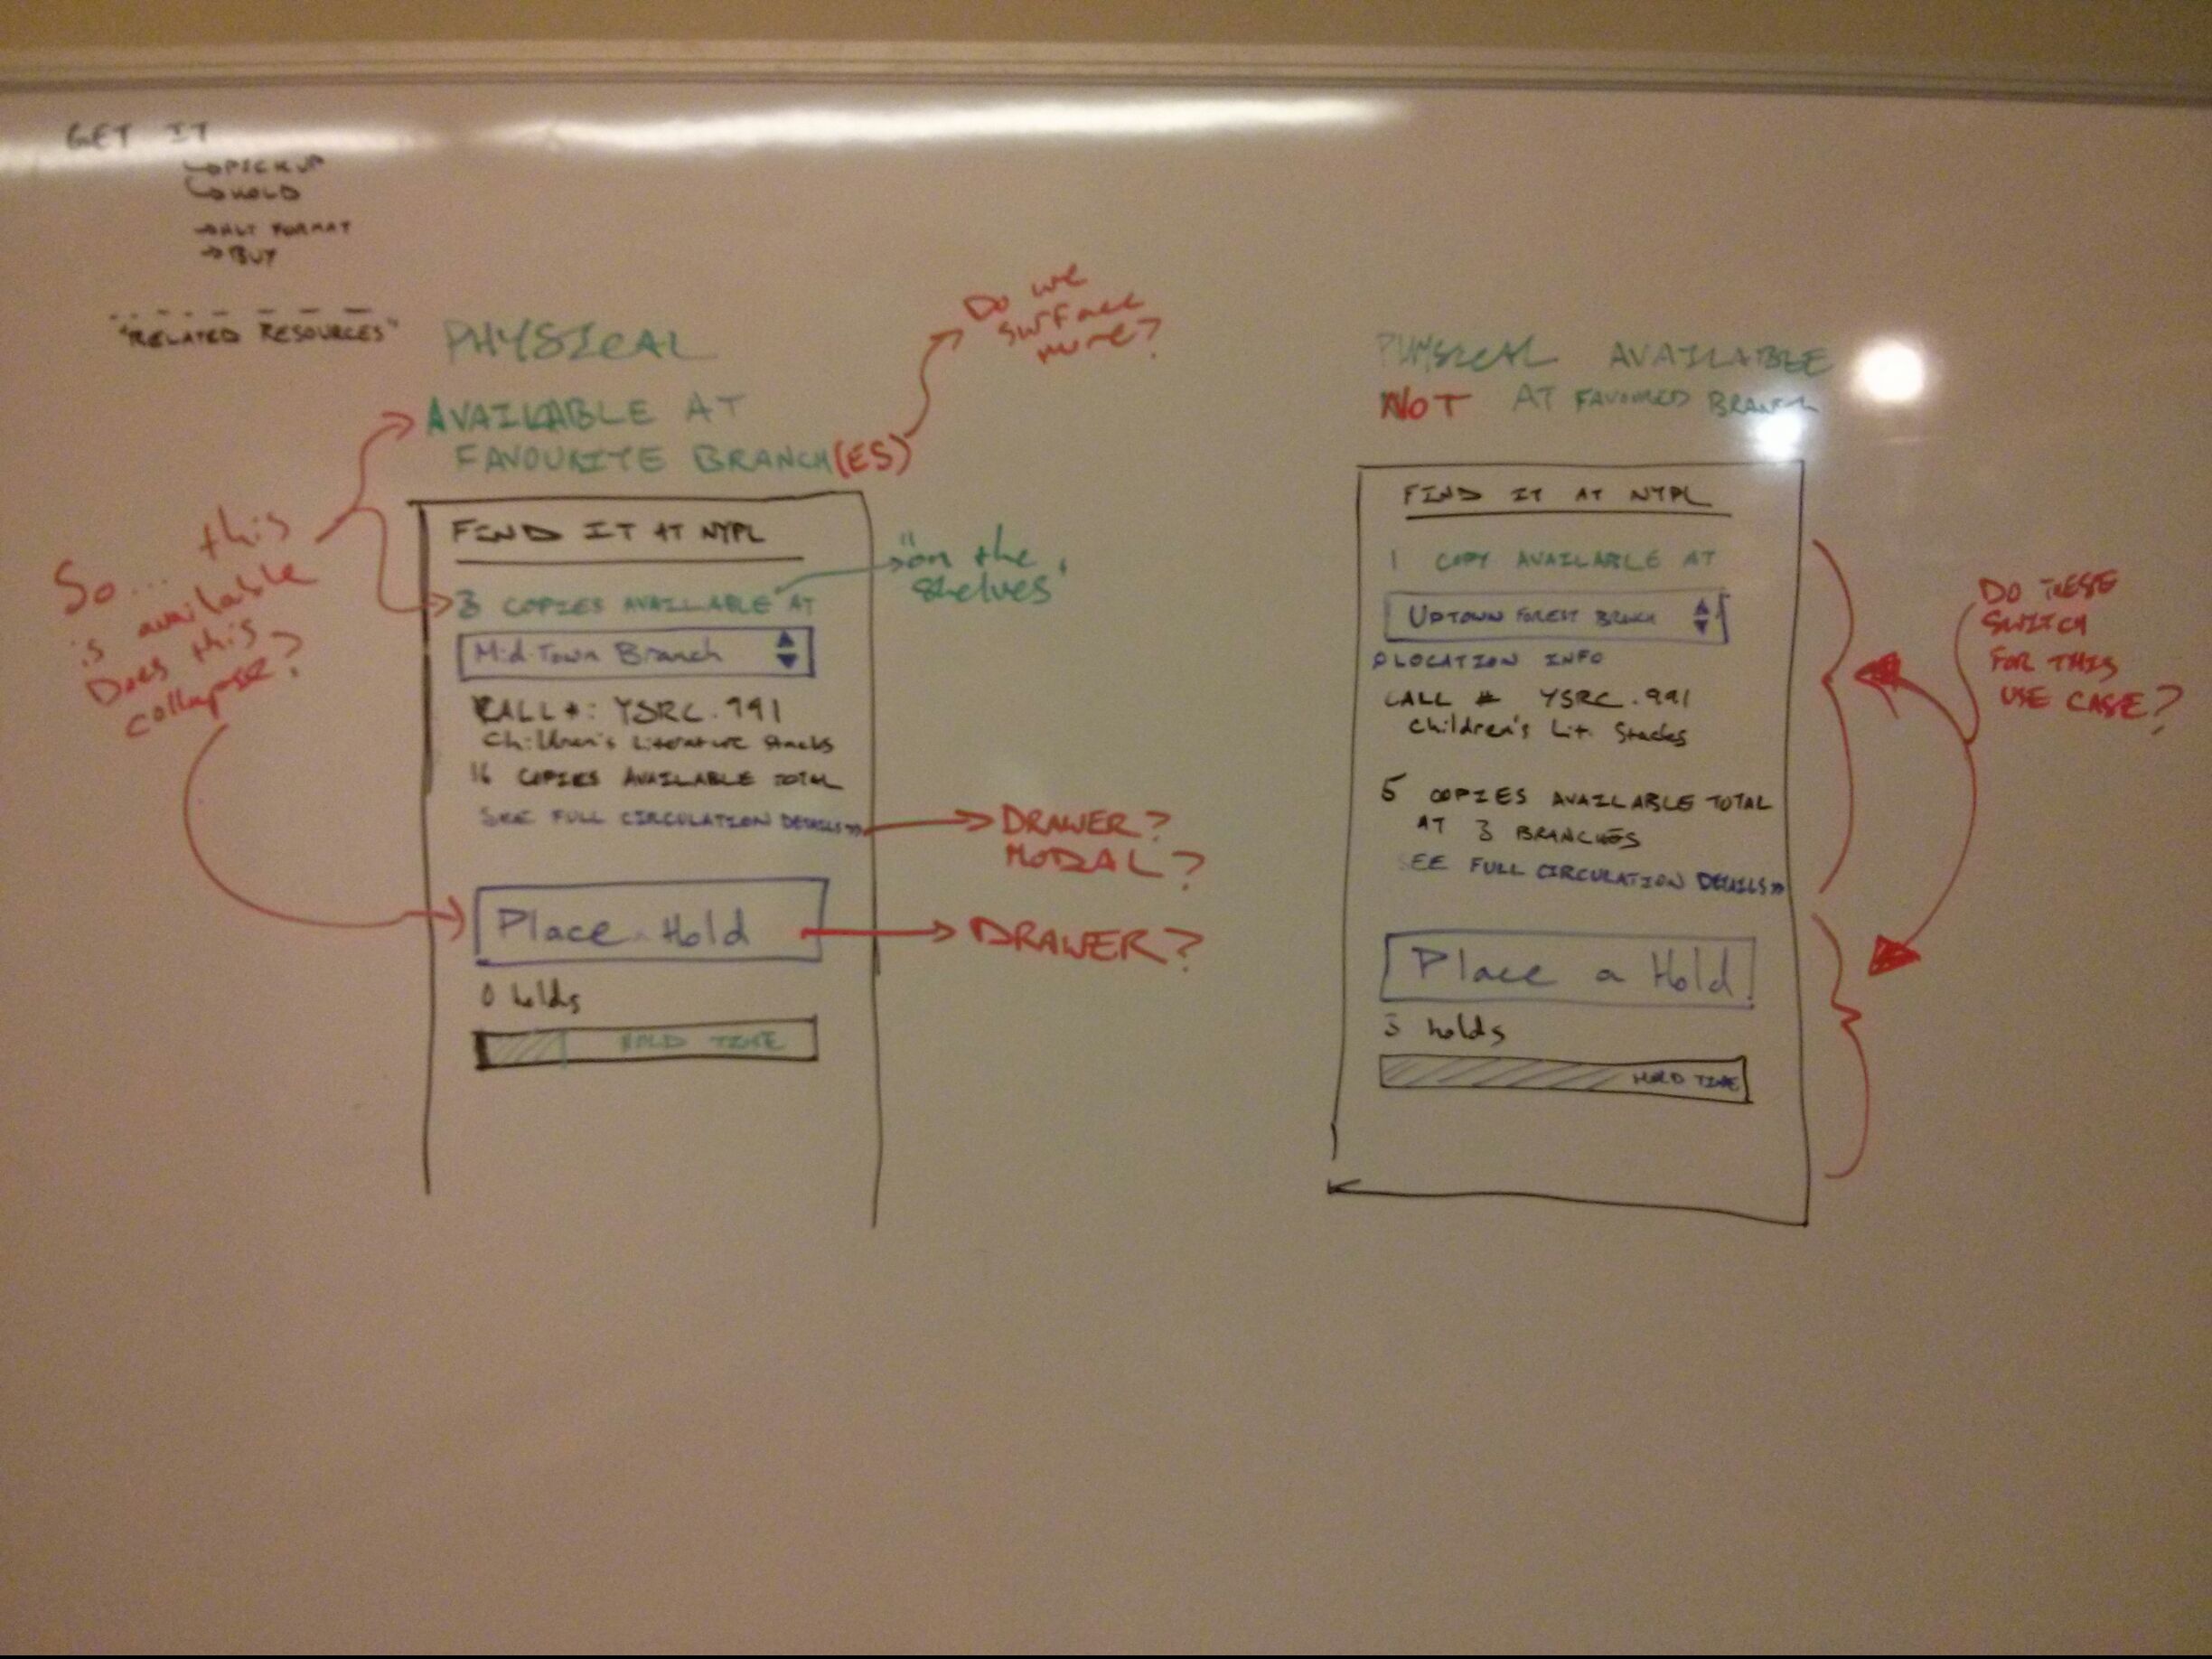 GET IT
PICKUP
HOLD
ALT FORMAT
BUY
"RELATED RESOURCES"
PHYSICAL
AVAILABLE AT
FAVOURITE BRANCH(ES)
Do we
surface
more?
So... this
is available
Does this
collapse?
FIND IT AT NYPL
3 COPIES AVAILABLE AT
"on the
shelves"
Mid-Town Branch
CALL #: YSRC.991
Children's Literature Stacks
16 COPIES AVAILABLE TOTAL
SEE FULL CIRCULATION DETAILS>>
DRAWER?
MODAL?
Place a Hold
DRAWER?
0 holds
HOLD TIME
PHYSICAL AVAILABLE
NOT AT FAVORED BRANCH
FIND IT AT NYPL
1 COPY AVAILABLE AT
UPTOWN FOREST BRANCH
LOCATION INFO
CALL # YSRC.991
Children's Lit. Stacks
5 COPIES AVAILABLE TOTAL
AT 3 BRANCHES
SEE FULL CIRCULATION DETAILS>>
Place a Hold
3 holds
HOLD TIME
DO THESE
SWITCH
FOR THIS
USE CASE?